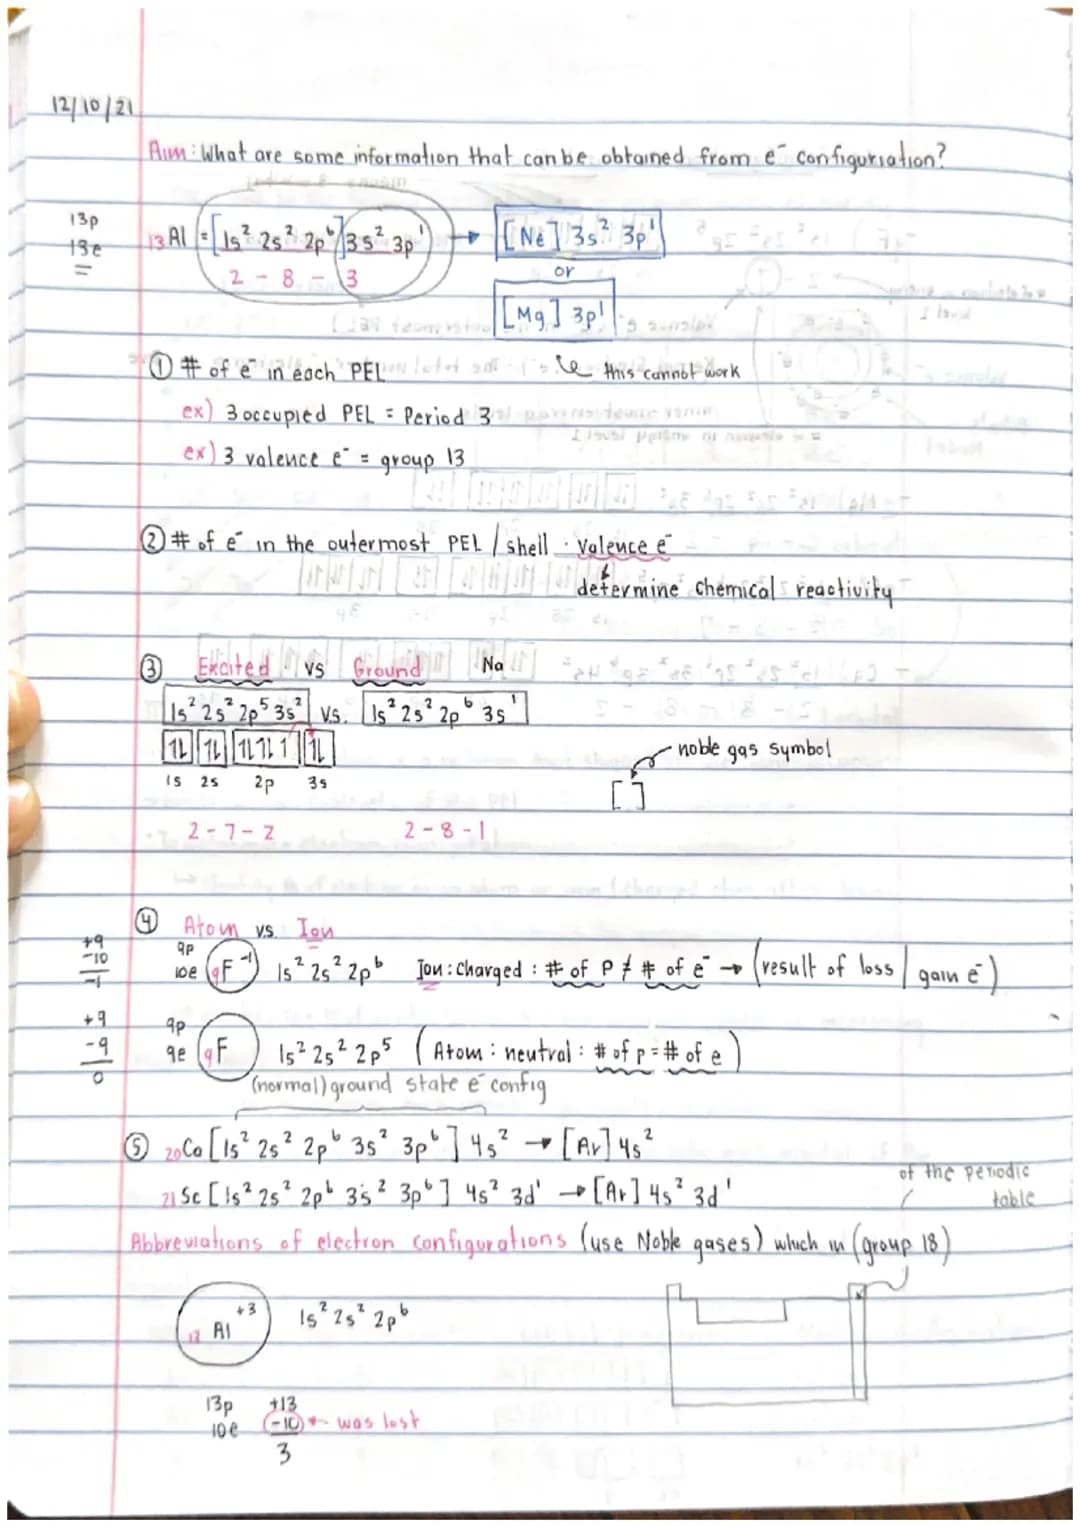 12/10/21
Aim: What are some information that can be obtained from e⁻ configuration?
13p
13e
₁₃Al = [1s² 2s² 2p⁶] 3s² 3p¹ → [Ne] 3s² 3p¹
2 - 8 - 3
or
[Mg] 3p¹
this cannot work
① # of e⁻ in each PEL
ex) 3 occupied PEL = Period 3
ex) 3 valence e⁻ = group 13
② # of e⁻ in the outermost PEL / shell : Valence e⁻
determine chemical reactivity
③ Excited vs Ground Na
1s² 2s² 2p⁵ 3s² v.s. 1s² 2s² 2p⁶ 3s¹
1L 1L 1L 1L 1 1L
1s 2s 2p 3s
noble gas symbol
[ ]
2 - 7 - 2 2 - 8 - 1
④ Atom vs. Ion
+9
-10
-1
9p
10e ₉F⁻¹ 1s² 2s² 2p⁶ Ion : charged : # of P ≠ # of e⁻ → (result of loss / gain e⁻)
+9
-9
0
9p
9e ₉F 1s² 2s² 2p⁵ (Atom : neutral : # of p = # of e)
(normal) ground state e⁻ config
⑤ ₂₀Ca [1s² 2s² 2p⁶ 3s² 3p⁶] 4s² → [Ar] 4s²
₂₁Sc [1s² 2s² 2p⁶ 3s² 3p⁶] 4s² 3d¹ → [Ar] 4s² 3d¹
of the periodic
table
Abbreviations of electron configurations (use Noble gases) which in (group 18)
₁₃Al⁺³ 1s² 2s² 2p⁶
13p +13
10e -10 ← was lost
3